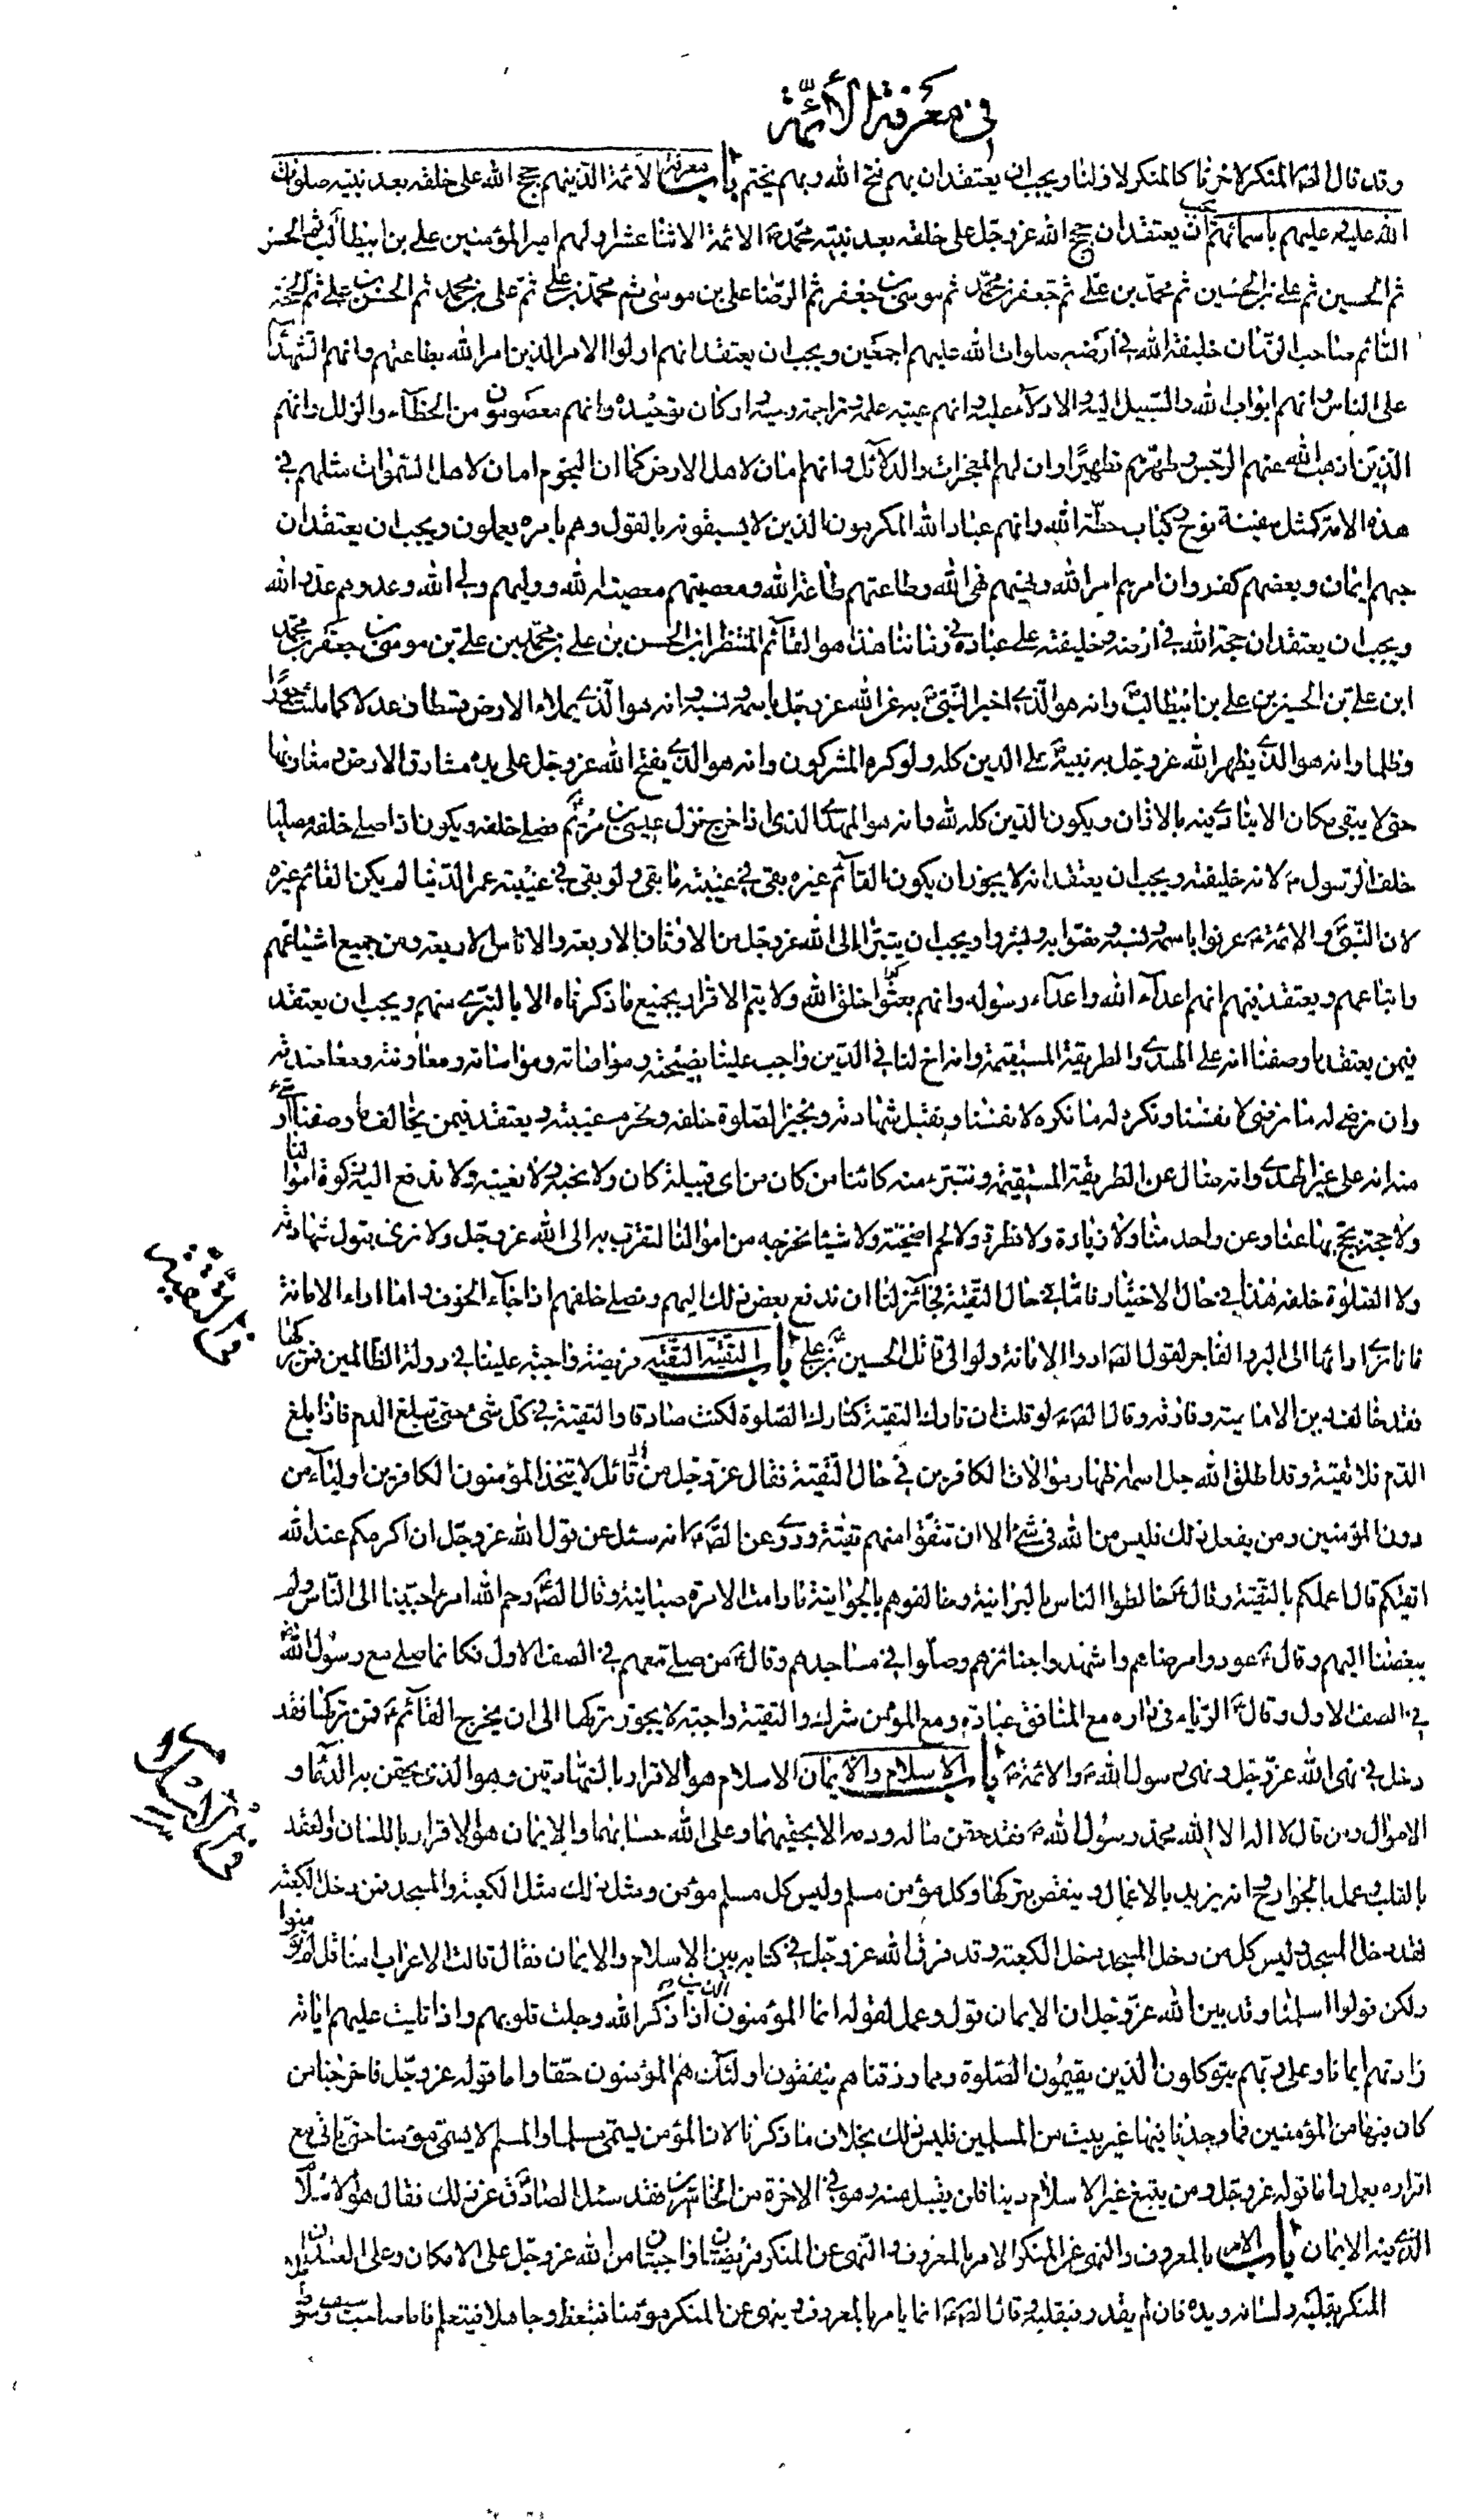 في معرفة الأئمة
وقد قال الصادق المنكر لآخرنا كالمنكر لاولنا ويجب ان يعتقد ان بهم فتح الله وبهم يختم باب معرفة الائمة الذينهم حجج الله على خلقه بعد نبيه صلوات
الله عليه وعليهم باسمائهم يجب ان يعتقد ان حجج الله عز وجل على خلقه بعد نبيه محمد ص الائمة الاثنا عشر اولهم امير المؤمنين علي بن ابيطالب ثم الحسن
ثم الحسين ثم علي بن الحسين ثم محمد بن علي ثم جعفر بن محمد ثم موسى بن جعفر ثم الرضا علي بن موسى ثم محمد بن علي ثم علي بن محمد ثم الحسن بن علي ثم الحجة
القائم صاحب الزمان خليفة الله في ارضه صلوات الله عليهم اجمعين ويجب ان يعتقد انهم اولوا الامر الذين امر الله بطاعتهم وانهم الشهداء
على الناس وانهم ابواب الله والسبيل اليه والادلاء عليه وانهم عيبة علمه وتراجمة وحيه واركان توحيده وانهم معصومون من الخطاء والزلل وانهم
الذين اذهب الله عنهم الرجس وطهرهم تطهيرا وان لهم المعجزات والدلائل وانهم امان لاهل الارض كما ان النجوم امان لاهل السموات مثلهم في
هذه الامة كمثل سفينة نوح وكباب حطة الله وانهم عباد الله المكرمون الذين لا يسبقونه بالقول وهم بامره يعملون ويجب ان يعتقد ان
حبهم ايمان وبغضهم كفر وان امرهم امر الله ونهيهم نهى الله وطاعتهم طاعة الله ومعصيتهم معصية الله ووليهم ولي الله وعدوهم عدو الله
ويجب ان يعتقد ان حجة الله في ارضه وخليفته على عباده في زماننا هذا هو القائم المنتظر ابن الحسن بن علي بن محمد بن علي بن موسى بن جعفر بن محمد
ابن علي بن الحسين بن علي بن ابيطالب ع وانه هو الذي اخبر النبي ص به عن الله عز وجل باسمه ونسبه وانه هو الذي يملاء الارض قسطا وعدلا كما ملئت جورا
وظلما وانه هو الذي يظهر الله عز وجل به نبيه ص على الدين كله ولو كره المشركون وانه هو الذي يفتح الله عز وجل على يده مشارق الارض ومغاربها
حتى لا يبقى مكان الا ينادى فيه بالاذان ويكون الدين كله لله وانه هو المهدي الذي اذا خرج نزل عيسى بن مريم فصلى خلفه ويكون اذا صلى خلفه مصليا
خلف الرسول ص لانه خليفته ويجب ان يعتقد انه لا يجوز ان يكون القائم غيره بقى في غيبته ما بقى ولو بقى في غيبته عمر الدنيا لم يكن القائم غيره
لان النبي ص والائمة ع عرفوا باسمه ونسبه ونصوا به وبشروا ويجب ان يتبرا الى الله عز وجل من الاوثان الاربعة والاناث الاربعة ومن جميع اشياعهم
واتباعهم ويعتقد فيهم انهم اعداء الله واعداء رسوله وانهم شر خلق الله ولا يتم الاقرار بجميع ما ذكرناه الا بالتبري منهم ويجب ان يعتقد
فيمن يعتقد ما وصفنا انه على الهدى والطريقة المستقيمة وانه اخ لنا في الدين واجب علينا نصيحته ومواساته ومعاونته ومعاضدته
وان نرضى له ما نرضى لانفسنا ونكره له ما نكره لانفسنا ونقبل شهادته ونجيز الصلوة خلفه ونحرم غيبته ويعتقد فيمن يخالف ما وصفنا او شيء
منه انه على غير الهدى وانه ضال عن الطريقة المستقيمة ونتبرء منه كائنا من كان من اى قبيلة كان ولا نحبه ولا نعينه ولا ندفع اليه زكوة اموالنا
ولا حجة يحج بها عنا وعن واحد منا ولا زيادة ولا فطرة ولا لحم اضحية ولا شيئا نخرجه من اموالنا لتقرب به الى الله عز وجل ولا نرى قبول شهادته
ولا الصلوة خلفه هذا في حال الاختيار فاما في حال التقية فجائز لنا ان ندفع بعض ذلك اليهم ونصلى خلفهم اذا جاء الخوف واما اداء الامانة
فانا نرى اداءها الى البر والفاجر لقول الصادق ع ادوا الامانة ولو الى قاتل الحسين بن علي ع باب التقية التقية فريضة واجبة علينا في دولة الظالمين فمن تركها
فقد خالف دين الامامية وفارقه وقال الصادق ع لو قلت ان تارك التقية كتارك الصلوة لكنت صادقا والتقية في كل شئ حتى تبلغ الدم فاذا بلغ
الدم فلا تقية وقد اطلق الله جل اسمه اظهار موالاة الكافرين في حال التقية فقال عز وجل من قائل لا يتخذ المؤمنون الكافرين اولياء من
دون المؤمنين ومن يفعل ذلك فليس من الله في شئ الا ان تتقوا منهم تقية وروى عن الصادق ع انه سئل عن قول الله عز وجل ان اكرمكم عند الله
اتقيكم قال اعملكم بالتقية وقال ع خالطوا الناس بالبرانية وخالفوهم بالجوانية ما دامت الامرة صبيانية وقال الصادق رحم الله امرء حببنا الى الناس ولم
يبغضنا اليهم وقال ع عودوا مرضاهم واشهدوا جنائزهم وصلوا في مساجدهم وقال ع من صلى معهم في الصف الاول فكانما صلى مع رسول الله ص
في الصف الاول وقال ع الرياء في داره مع المنافق عبادة ومع المؤمن شرك والتقية واجبة لا يجوز تركها الى ان يخرج القائم ع فمن تركها فقد
دخل في نهى الله عز وجل ونهى رسول الله ص والائمة ع باب الاسلام والايمان الاسلام هو الاقرار بالشهادتين وهو الذي يحقن به الدماء و
الاموال ومن قال لا اله الا الله محمد رسول الله ص فقد حقن ماله ودمه الا بحقيهما وعلى الله حسابهما والايمان هو الاقرار باللسان والعقد
بالقلب وعمل بالجوارح وانه يزيد بالاعمال وينقص بتركها وكل مؤمن مسلم وليس كل مسلم مؤمن ومثل ذلك مثل الكعبة والمسجد فمن دخل الكعبة
فقد دخل المسجد وليس كل من دخل المسجد دخل الكعبة وقد فرق الله عز وجل في كتابه بين الاسلام والايمان فقال قالت الاعراب امنا قل لم تؤمنوا
ولكن قولوا اسلمنا وقد بين الله عز وجل ان الايمان قول وعمل لقوله انما المؤمنون الذين اذا ذكر الله وجلت قلوبهم واذا تليت عليهم اياته
زادتهم ايمانا وعلى ربهم يتوكلون الذين يقيمون الصلوة ومما رزقناهم ينفقون اولئك هم المؤمنون حقا واما قوله عز وجل فاخرجنا من
كان فيها من المؤمنين فما وجدنا فيها غير بيت من المسلمين فليس ذلك بخلاف ما ذكرنا لان المؤمن يسمى مسلما والمسلم لا يسمى مؤمنا حتى ياتى مع
اقراره بعمل واما قوله عز وجل ومن يبتغ غير الاسلام دينا فلن يقبل منه وهو في الاخرة من الخاسرين فقد سئل الصادق عن ذلك فقال هو الاسلام
الذي فيه الايمان باب الامر بالمعروف والنهى عن المنكر الامر بالمعروف والنهى عن المنكر فريضتان واجبتان من الله عز وجل على الامكان وعلى العبد ان
المنكر بقلبه ولسانه ويده فان لم يقدر فبقلبه وقال الصادق ع انما يامر بالمعروف وينهى عن المنكر مؤمنا فيتعظ وجاهلا فيتعلم فاما صاحب سيف وسوط